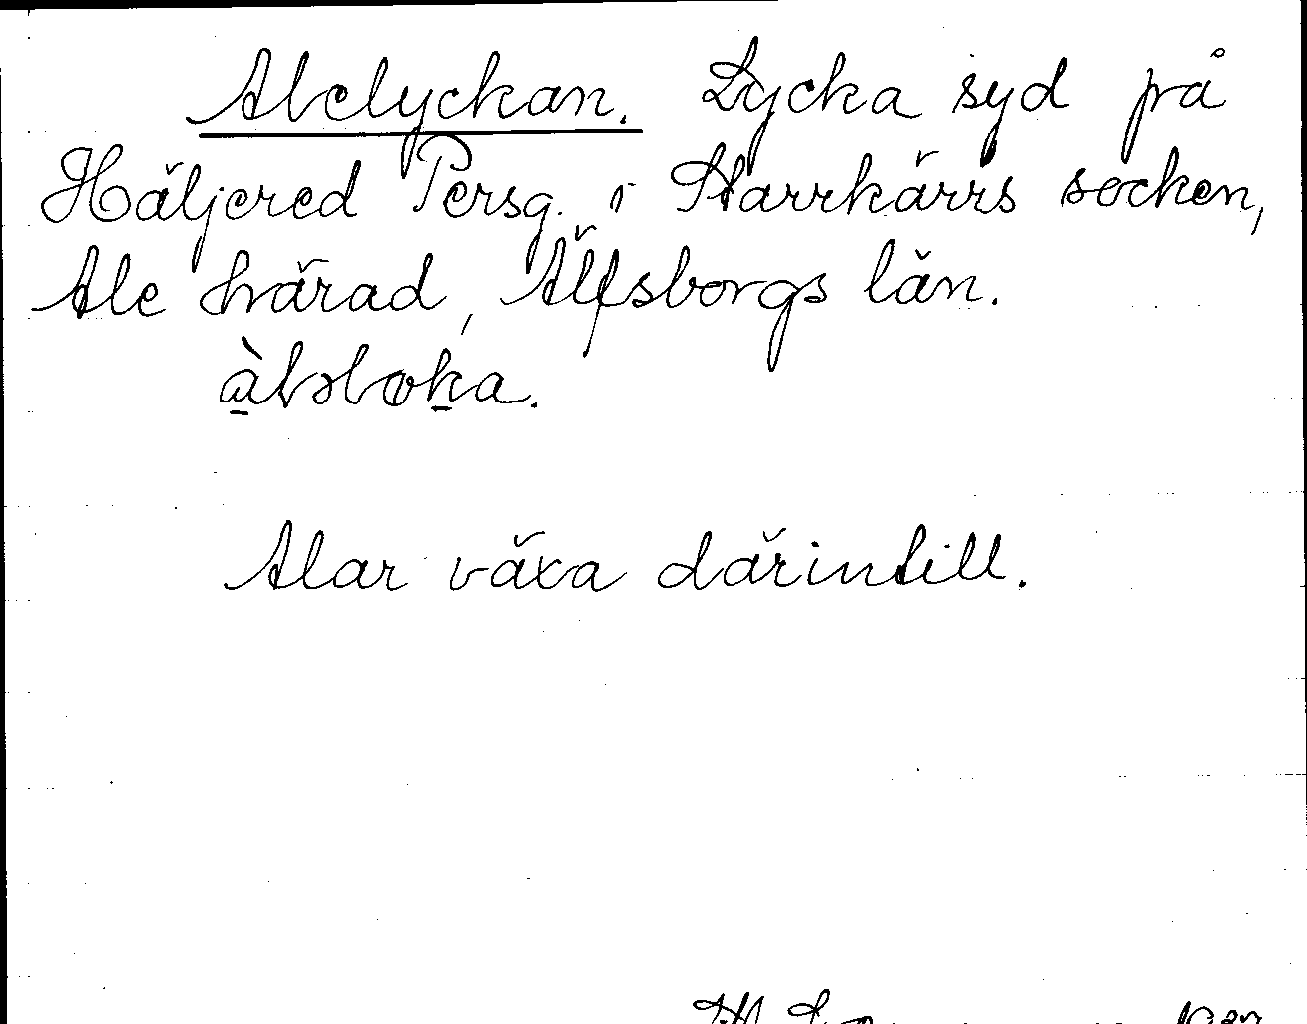 Alelyckan. Lycka syd på
Häljered Persg. i Starrkärrs socken,
Ale härad, Älfsborgs län.
Alar växa därintill.